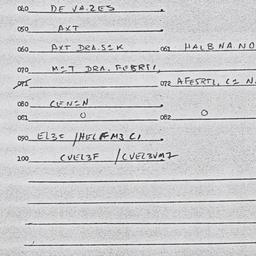 040 DE VA.ZES
050 AXT
060 AXT DRA.S=K 061 HALB NA.NO
070 M=T DRA. FEBRTI,
072 AFESRTI, C= N.
080 CEN=N
081 O 082 O
090 EL3= /HELFM3 CI
100 CVEL3F /CVEL3VM7